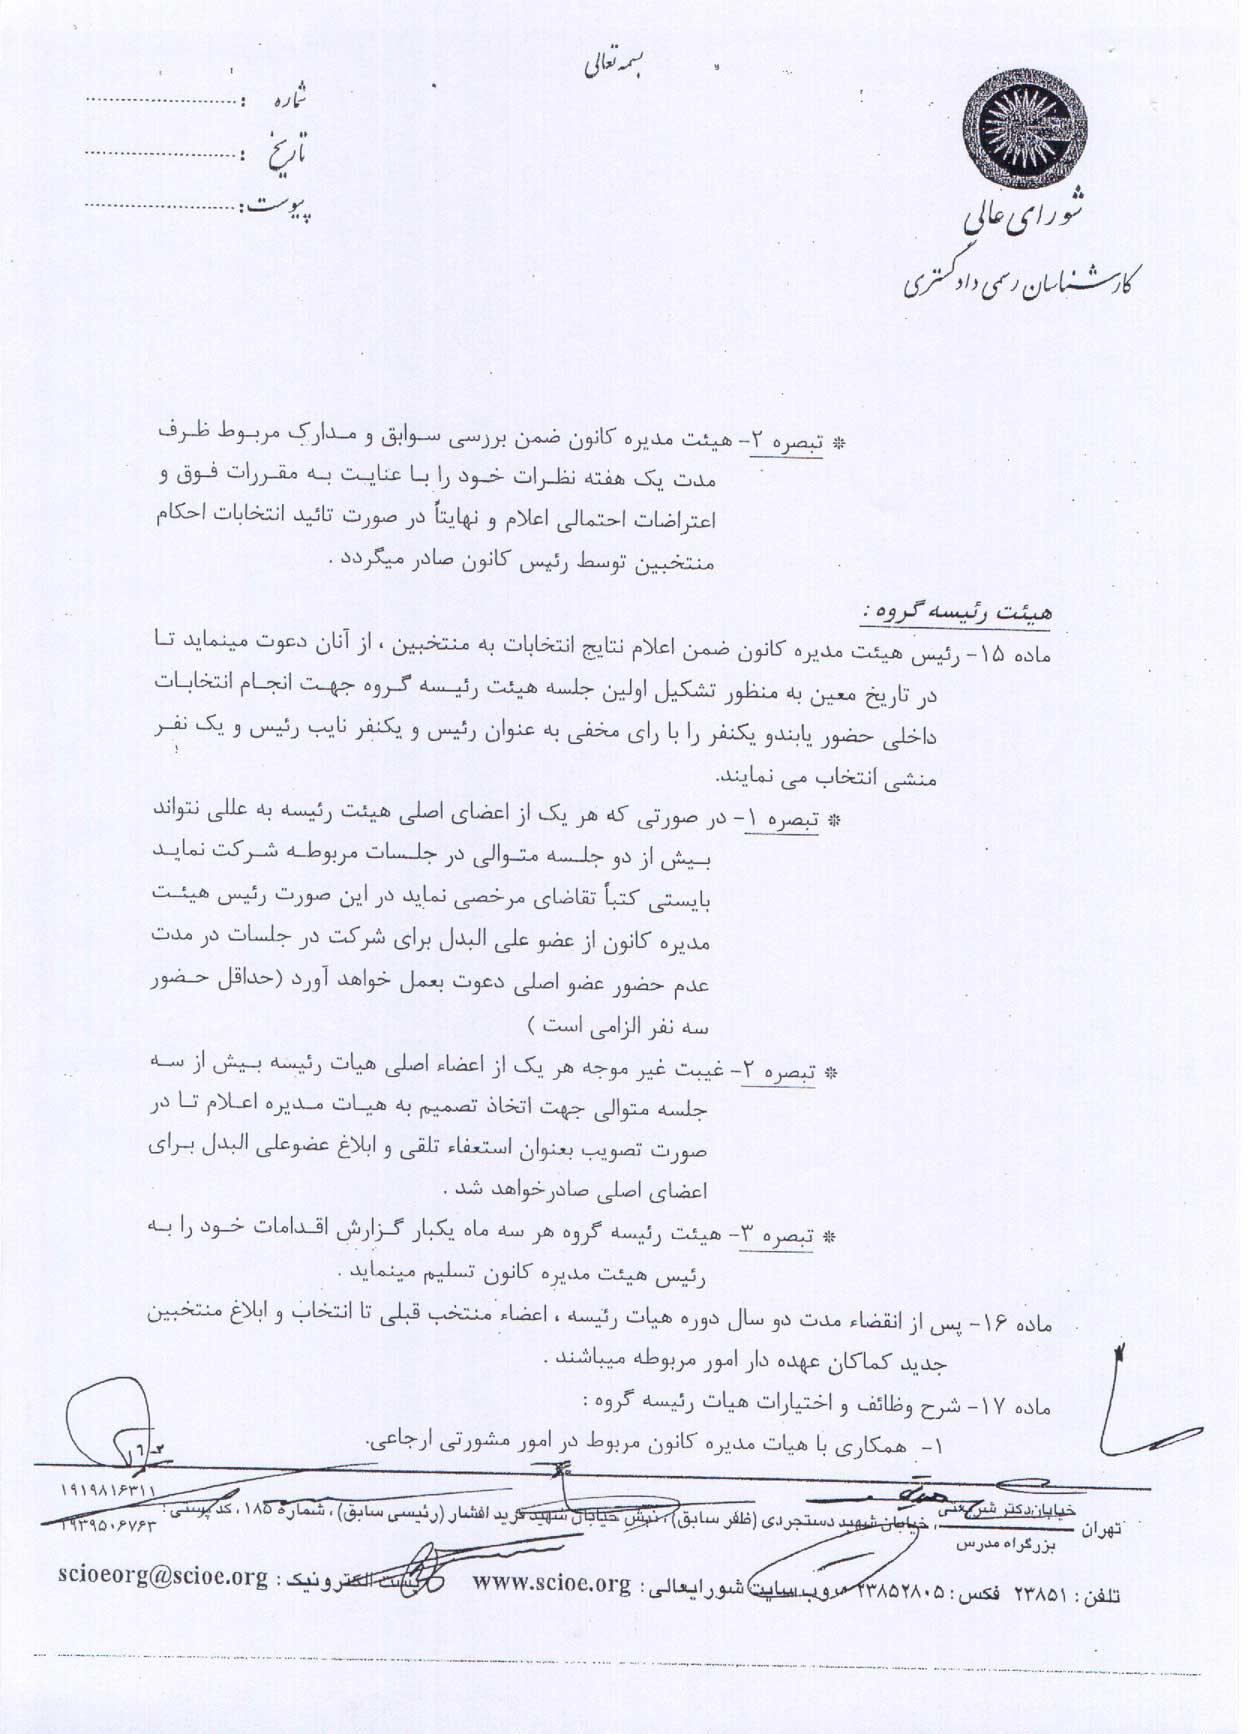 بسمه تعالی
شماره :
تاریخ :
پیوست :
شورای عالی
کارشناسان رسمی دادگستری
* تبصره ۲- هیئت مدیره کانون ضمن بررسی سوابق و مدارک مربوط ظرف
مدت یک هفته نظرات خود را با عنایت به مقررات فوق و
اعتراضات احتمالی اعلام و نهایتاً در صورت تائید انتخابات احکام
منتخبین توسط رئیس کانون صادر میگردد .
هیئت رئیسه گروه :
ماده ۱۵- رئیس هیئت مدیره کانون ضمن اعلام نتایج انتخابات به منتخبین ، از آنان دعوت مینماید تا
در تاریخ معین به منظور تشکیل اولین جلسه هیئت رئیسه گروه جهت انجام انتخابات
داخلی حضور یابندو یکنفر را با رای مخفی به عنوان رئیس و یکنفر نایب رئیس و یک نفر
منشی انتخاب می نمایند.
* تبصره ۱- در صورتی که هر یک از اعضای اصلی هیئت رئیسه به عللی نتواند
بیش از دو جلسه متوالی در جلسات مربوطه شرکت نماید
بایستی کتباً تقاضای مرخصی نماید در این صورت رئیس هیئت
مدیره کانون از عضو علی البدل برای شرکت در جلسات در مدت
عدم حضور عضو اصلی دعوت بعمل خواهد آورد (حداقل حضور
سه نفر الزامی است )
* تبصره ۲- غیبت غیر موجه هر یک از اعضاء اصلی هیات رئیسه بیش از سه
جلسه متوالی جهت اتخاذ تصمیم به هیات مدیره اعلام تا در
صورت تصویب بعنوان استعفاء تلقی و ابلاغ عضوعلی البدل برای
اعضای اصلی صادرخواهد شد .
* تبصره ۳- هیئت رئیسه گروه هر سه ماه یکبار گزارش اقدامات خود را به
رئیس هیئت مدیره کانون تسلیم مینماید .
ماده ۱۶- پس از انقضاء مدت دو سال دوره هیات رئیسه ، اعضاء منتخب قبلی تا انتخاب و ابلاغ منتخبین
جدید کماکان عهده دار امور مربوطه میباشند .
ماده ۱۷- شرح وظائف و اختیارات هیات رئیسه گروه :
۱- همکاری با هیات مدیره کانون مربوط در امور مشورتی ارجاعی.
تهران خیابان دکتر شریعتی ، خیابان شهید دستجردی (ظفر سابق) ، نبش خیابان شهید فرید افشار (رئیسی سابق) ، شماره ۱۸۵ ، کد پستی : ۱۹۱۹۸۱۶۳۱۱
بزرگراه مدرس ۱۹۳۹۵۰۶۷۶۳
تلفن : ۲۳۸۵۱ فکس : ۲۳۸۵۲۸۰۵ وب سایت شورایعالی : www.scioe.org پست الکترونیک : scioeorg@scioe.org